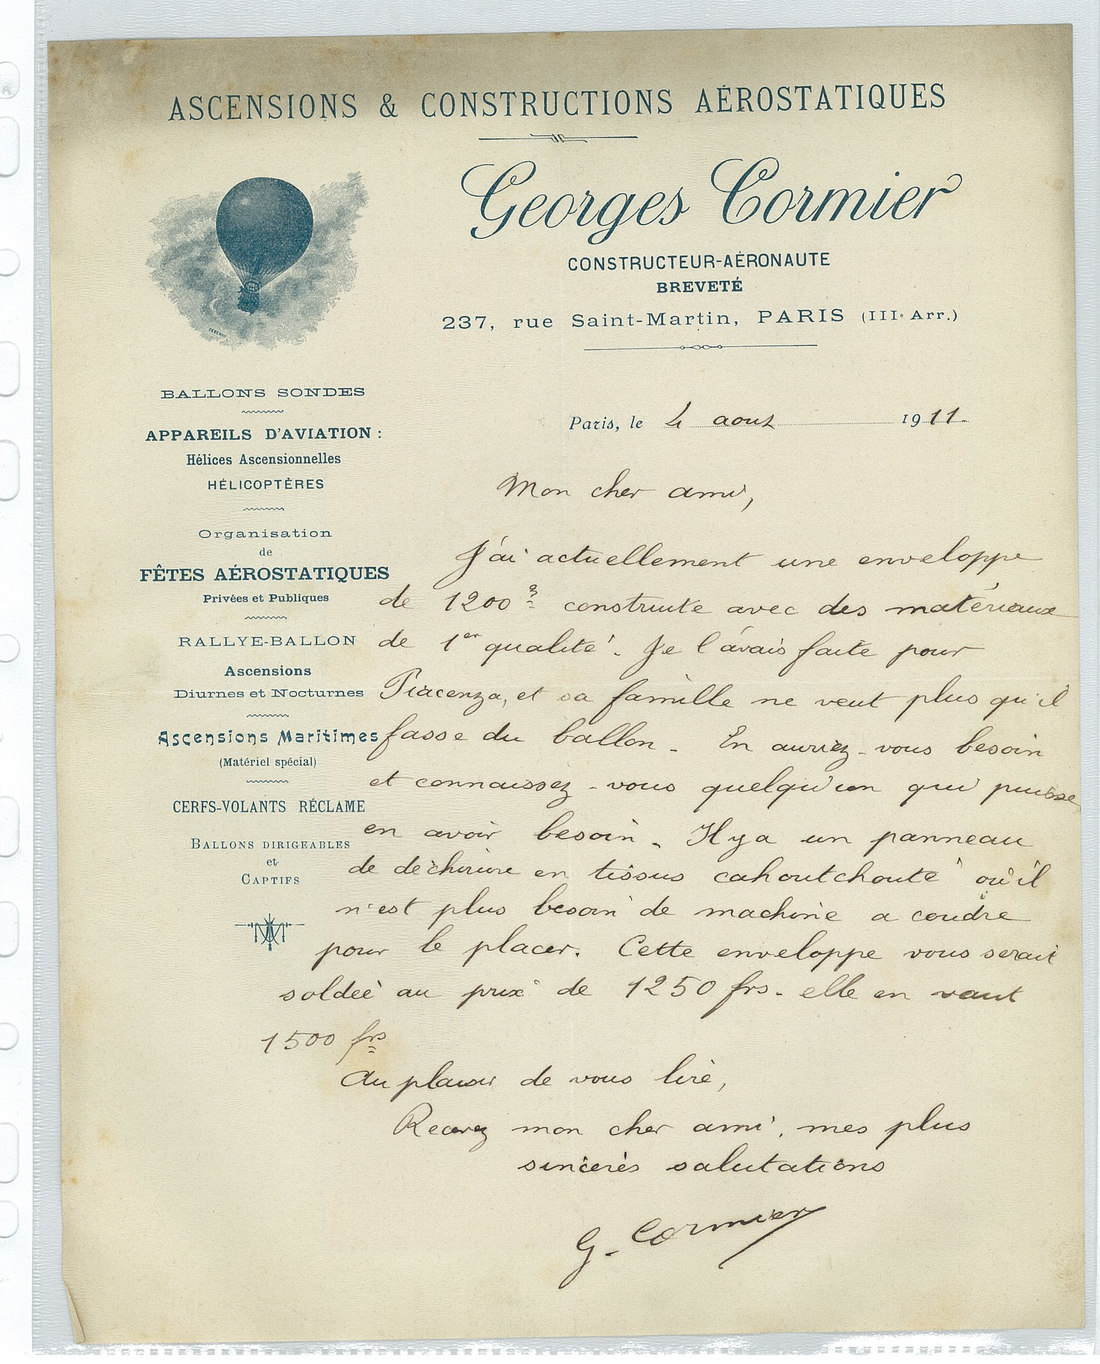 ASCENSIONS & CONSTRUCTIONS AÉROSTATIQUES
Georges Cormier
CONSTRUCTEUR-AÉRONAUTE
BREVETÉ
237, rue Saint-Martin, PARIS (IIIe Arr.)
BALLONS SONDES
APPAREILS D'AVIATION :
Hélices Ascensionnelles
HÉLICOPTÈRES
Organisation
de
FÊTES AÉROSTATIQUES
Privées et Publiques
RALLYE-BALLON
Ascensions
Diurnes et Nocturnes
Ascensions Maritimes
(Matériel spécial)
CERFS-VOLANTS RÉCLAME
BALLONS DIRIGEABLES
et
CAPTIFS
Paris, le 4 aout 1911.
Mon cher ami,
J'ai actuellement une enveloppe
de 1200 3 construite avec des matériaux
de 1er qualité. Je l'avais faite pour
Piacenza, et sa famille ne veut plus qu'il
fasse du ballon. En auriez-vous besoin
et connaissez-vous quelqu'un qui puisse
en avoir besoin. Il y a un panneau
de dechirure en tissus cahoutchouté où il
n'est plus besoin de machine a coudre
pour le placer. Cette enveloppe vous serait
soldée au prix de 1250 frs. elle en vaut
1500 frs
Au plaisir de vous lire,
Recevez mon cher ami, mes plus
sincères salutations
G. Cormier